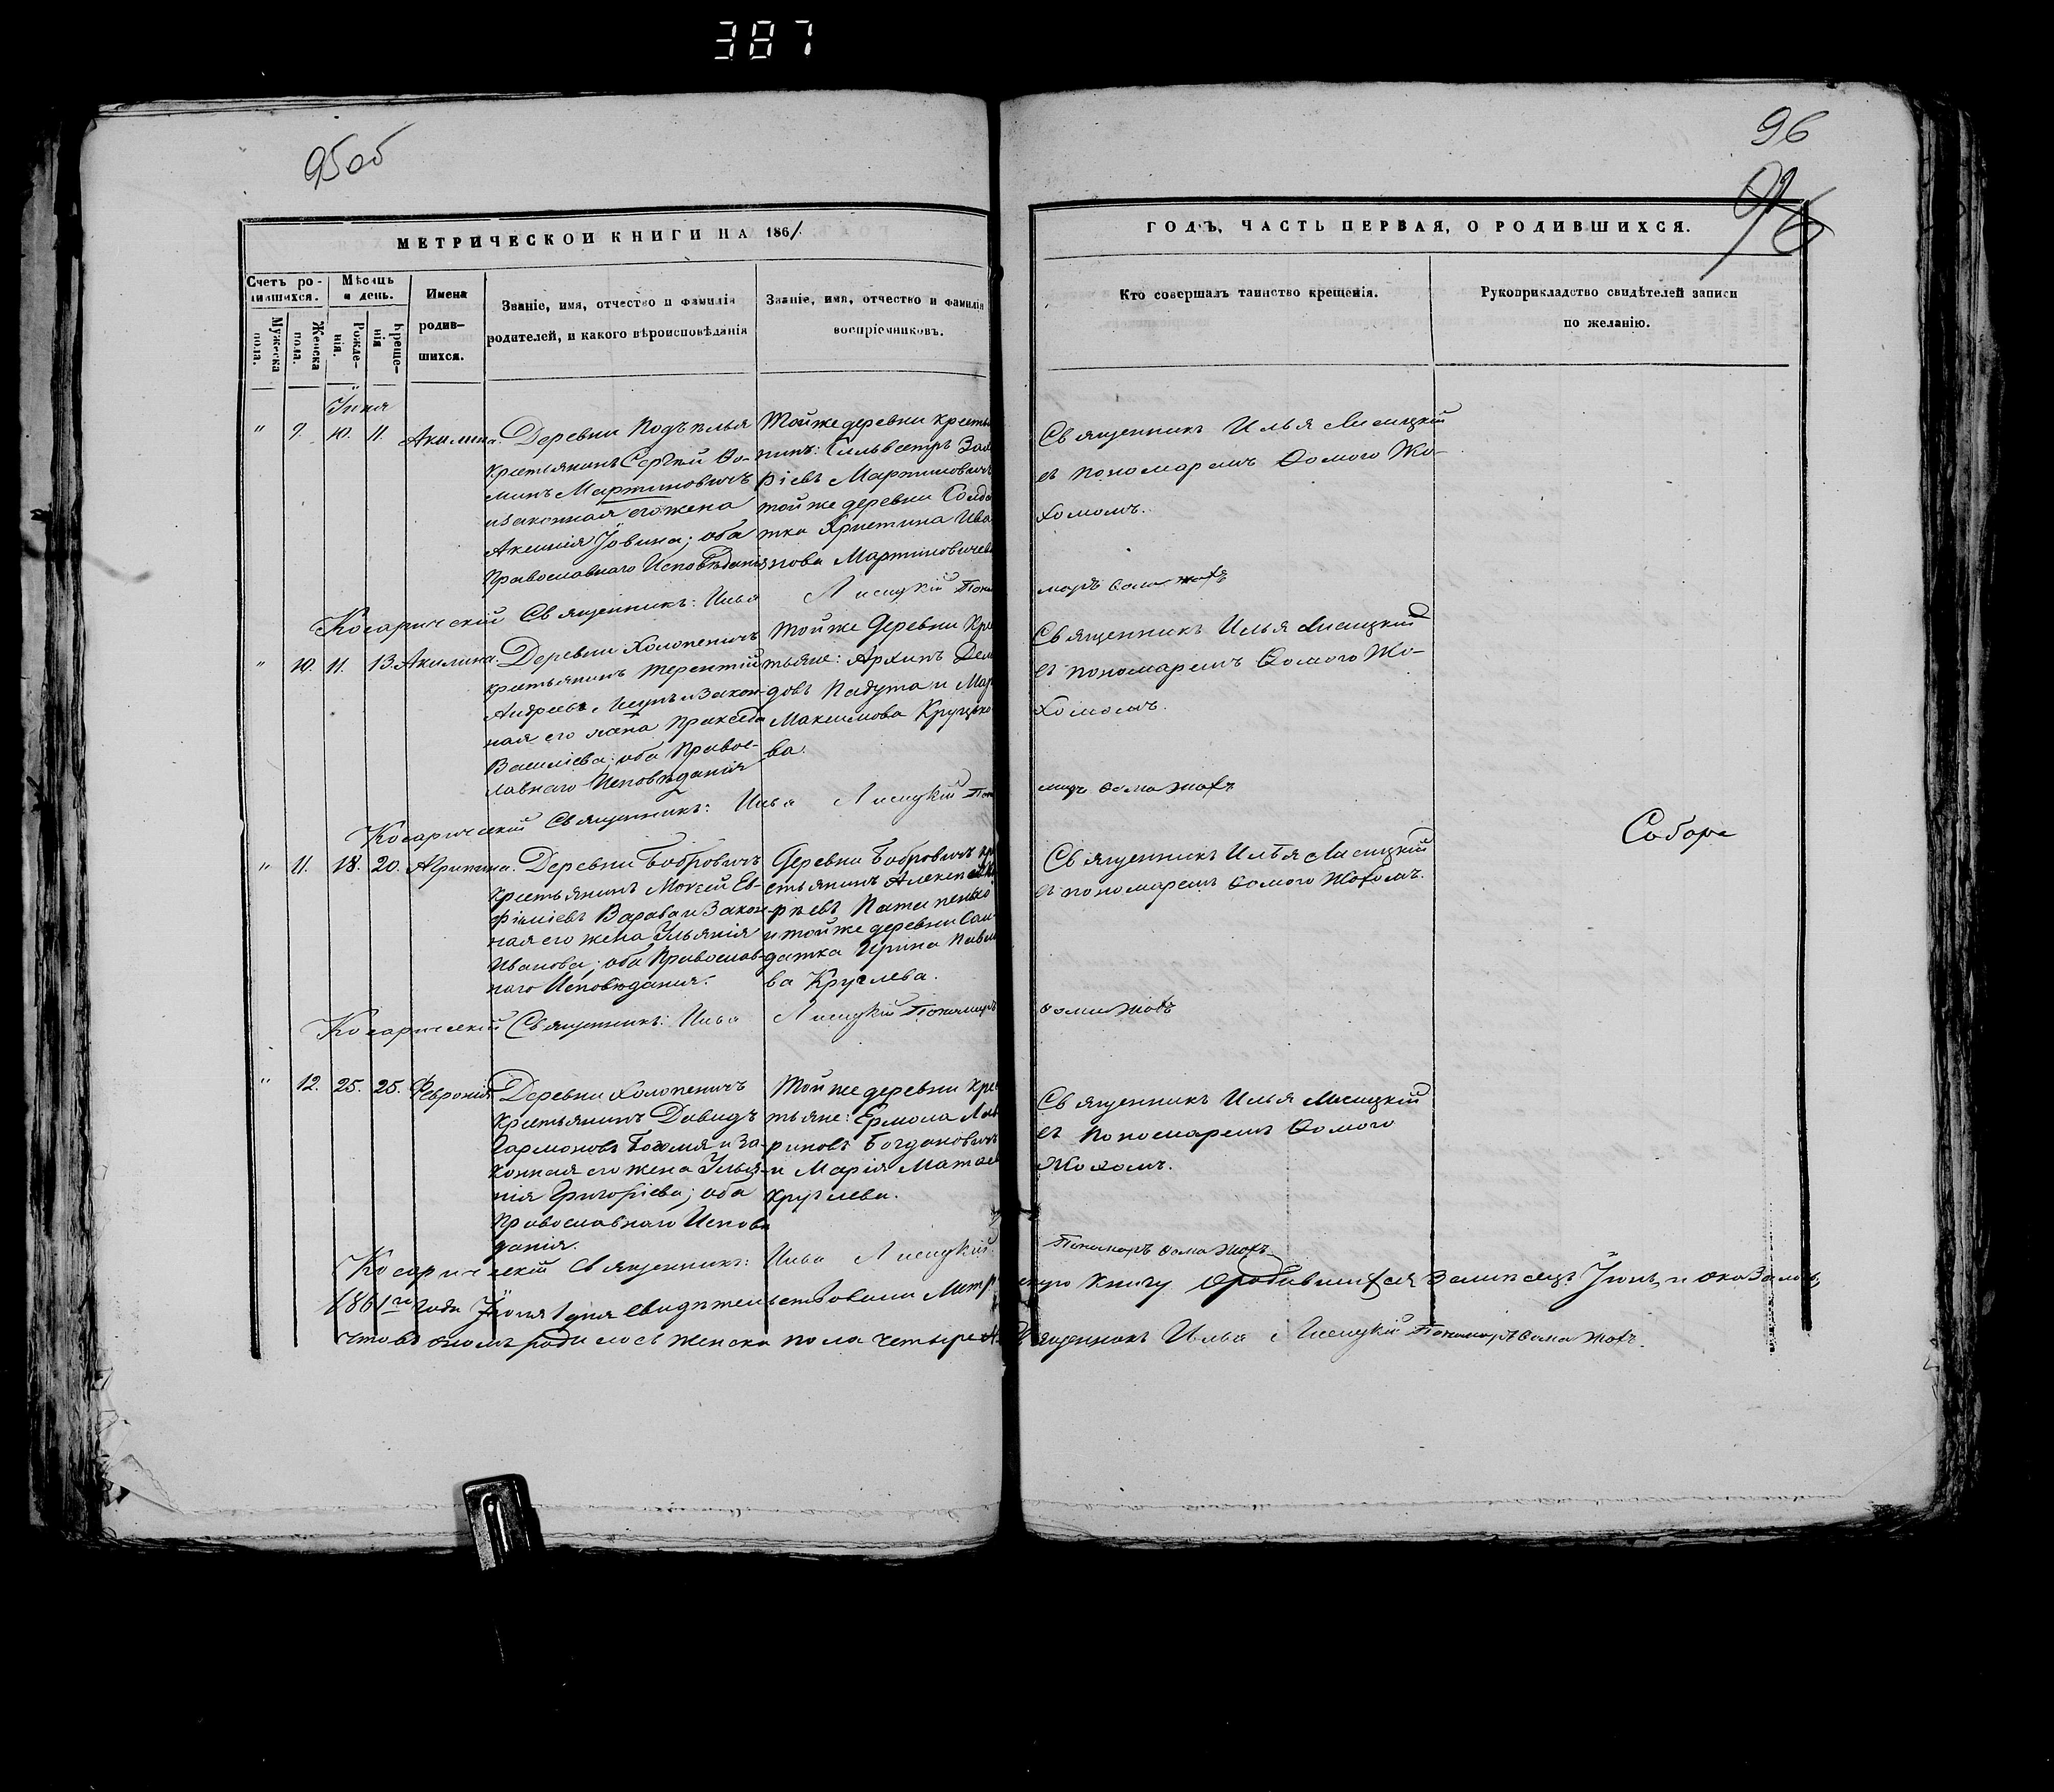 387
95 об
96
МЕТРИЧЕСКОЙ КНИГИ НА 1861
ГОДЪ, ЧАСТЬ ПЕРВАЯ, О РОДИВШИХСЯ.
Счетъ ро-
дившихся.
Мужеска пола.
Женска пола.
Мѣсяцъ и день.
Рожде-
нія.
Креще-
нія
Имена
родив-
шихся.
Званіе, имя, отчество и фамилія
родителей, и какого вѣроисповѣданія
Званіе, имя, отчество и фамилія
воспріемниковъ.
Кто совершалъ таинство крещенія.
Рукоприкладство свидѣтелей записи
по желанію.
" 9. 10. 11. Акилина.
Деревни
Крестьянинъ Сергѣй Ѳо-
минъ Мартиновичъ
и законная его жена
Аксинія Іовина; оба
Православнаго Исповѣданія
Той же деревни кресть
нинъ: Сильвестръ
Мартиновичъ
той же деревни Солда
тка Христина Ива
нова Мартиновичева
Священникъ Илья Лисицкій
съ пономаремъ Ѳомою Жо-
хомъ.
Косаричскій Священникъ: Илья Лисицкій Поно
марь Ѳома Жохъ
" 10. 11. 13. Акилина.
Деревни Холопеничъ
крестьянинъ Терентій
Андреевъ и закон-
ная его жена Праксeда
Василіева; оба Правос-
лавнаго Исповѣданія
Той же Деревни Кре
тьяне: Архипъ
довъ Падута и Мар
Максимова
ва.
Священникъ Илья Лисицкій
съ пономаремъ Ѳомою Жо-
хомомъ.
Косаричскій Священникъ: Илья Лисицкій Поно
марь Ѳома Жохъ
Соборе
" 11. 18. 20. Агрипина.
Деревни Бобровичъ
Крестьянинъ Моисей Ев-
фиміевъ Вараба и Закон-
ная его жена Ульянія
Иванова; оба Православ-
наго Исповѣданія.
Деревни Бобровичъ кр
стьянинъ Алексѣй
и той же деревни Сол-
датка Ирина Павло
ва Круглева.
Священникъ Илья Лисицкій
съ пономаремъ Ѳомою Жохомъ.
Косаричскій Священникъ: Илья Лисицкій Пономарь
Ѳома Жохъ
" 12. 25. 25. Февронія
Деревни Холопеничъ
Крестьянинъ Давидъ
Гармоновъ и За-
конная его жена Улья-
нія Григоріева; оба
Православнаго Исповѣ
данія.
Той же деревни кре
тьяне: Ермола
риновъ Богдановичъ
и Марія
Круглева.
Священникъ Илья Лисицкій
съ Пономаремъ Ѳомою
Жохомъ.
Косаричскій Священникъ: Илья Лисицкій
Пономарь Ѳома Жохъ
1861го года 1 дня свидѣтельствовали Метр
скую книгу о родившихся за мѣсяцъ Іюнь, и оказалось,
что въ ономъ родилось женска пола четыре
Священникъ Илья Лисицкій Пономарь Ѳома Жохъ.